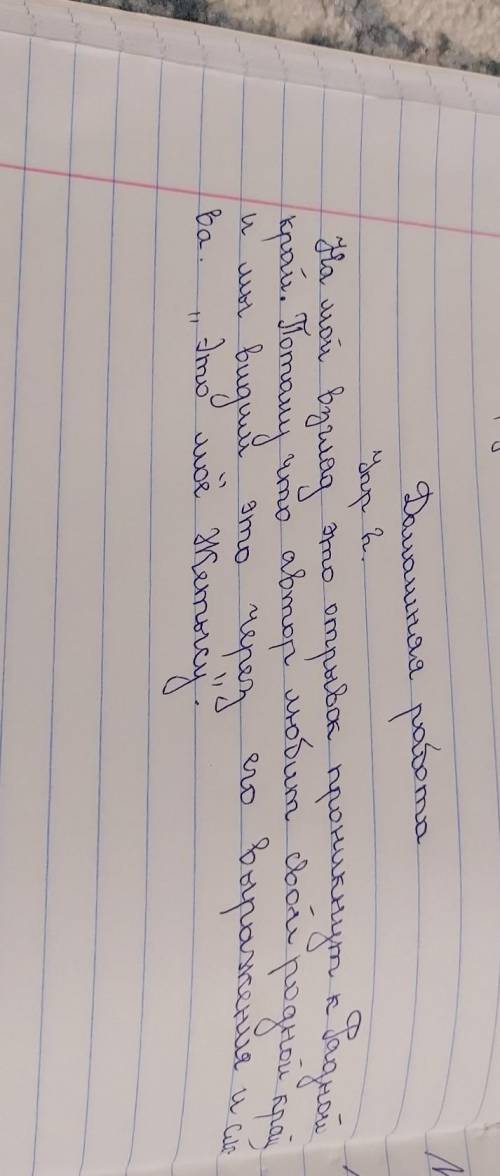 Домашняя работа
Упр 2.
На мой взгляд это отрывок проникнут к Радной
край. Потому что автор любит свой родной край
и мы видим это через его выражения и сло
ва. „Это моё Жетысу".